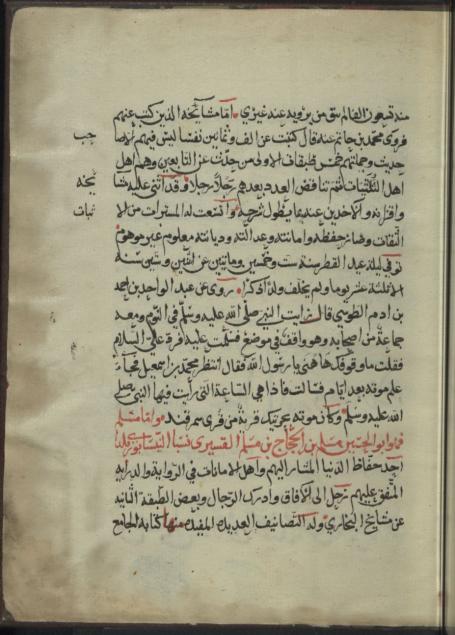 منه تسعون الفا لم يبق من يرويه عنه غيري واما مشايخه الذين كتب عنهم
فروى محمد بن حاتم عنه قال كتبت عن الف وثمانين نفسا ليس فيهم الا صاحب
حديث وجملتهم خمس طبقات الاولى من حدثه عن التابعين وهم اهل
اهل الثلاثيات ثم تناقص العدد بعدهم رجلا رجلا وقد اثنى عليه مشايخه
واقرانه والآخذين عنه بما يطول شرحه واتسعت له المسيرات من الاثبات
الثقات وصار حفظه وامانته وعدالته وديانته معلوم غير موهوم
توفي ليلة عيد الفطر سنة ست وخمسين ومائتين عن اثنين وستين سنة
الا ثلثة عشر يوما ولم يخلف ولدا ذكرا روى عن عبد الواحد بن احمد
بن ادم الطوسي قال رايت النبي صلى الله عليه وسلم في النوم ومعه
جماعة من اصحابه وهو واقف في موضع فسلمت عليه فرد علي السلام
فقلت ما وقوفك هاهنا يا رسول الله فقال انتظر محمد بن اسمعيل فجاء
علم موته بعد ايام فسالت فاذا هي الساعة التي رايت فيها النبي صلى
الله عليه وسلم وكان موته بخرتنك قرية من قرى سمرقند واما مسلم
فهو ابو الحسين مسلم بن الحجاج بن مسلم القشيري نسبا النيسابوري
احد حفاظ الدنيا المشار اليهم واهل الامانات في الرواية والدراية
المتفق عليهم رحل الى الآفاق وادرك الرجال وبعض الطبقة الثانية
عن مشايخ البخاري وله التصانيف العديدة المفيدة منها كتابه الجامع